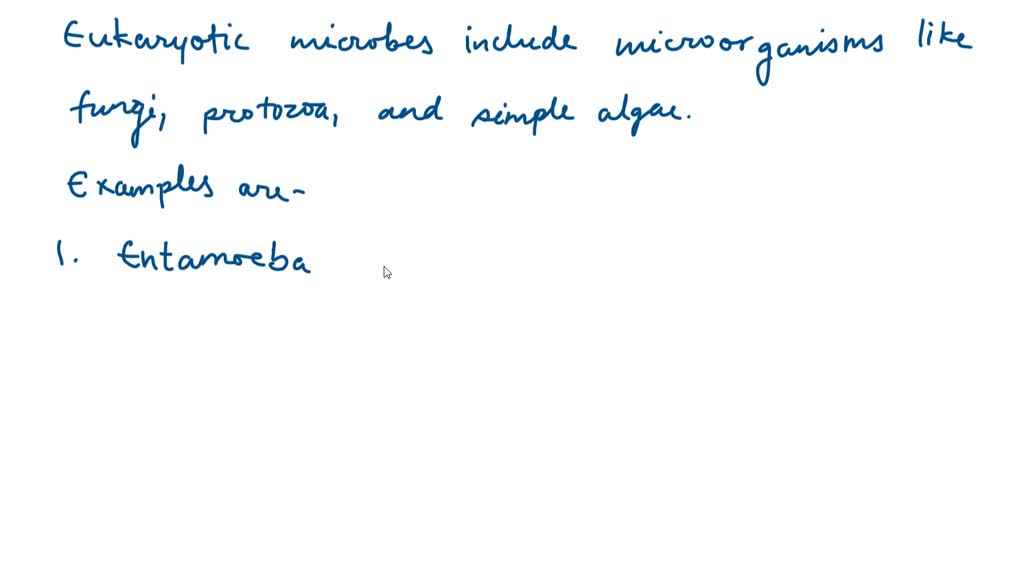 Eukaryotic microbes include microorganisms like
fungi, protozoa, and simple algae.
Examples are-
1. Entamoeba